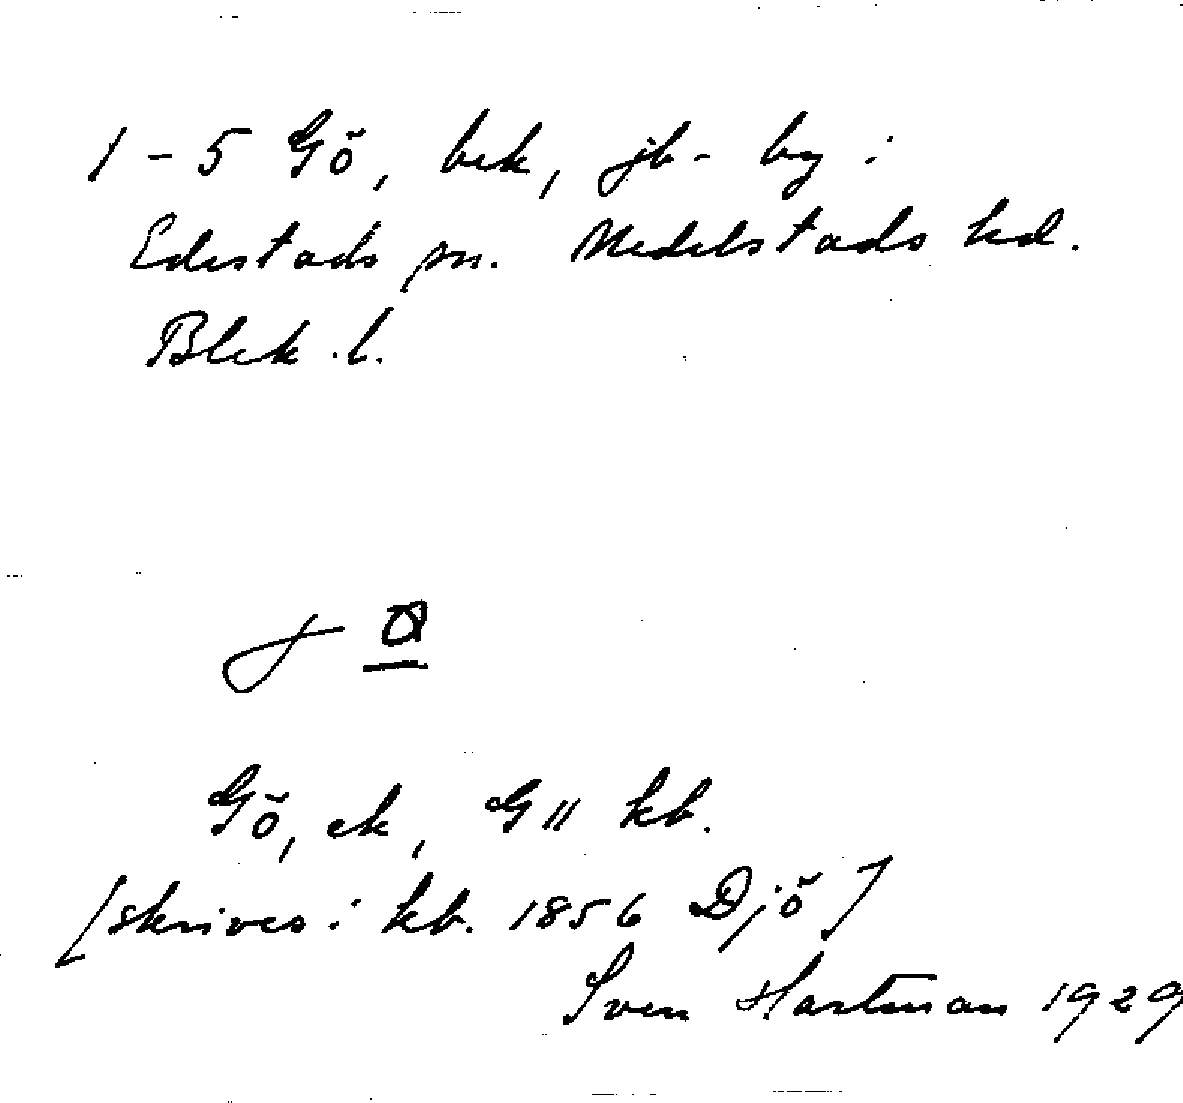 1-5 Gö, bek, jb- by i
Edestads sn. Medelstads hd.
Blek. l.
Gö, ek, G II kb.
[skrives i kb. 1856 Djö]
Sven Hartman 1929